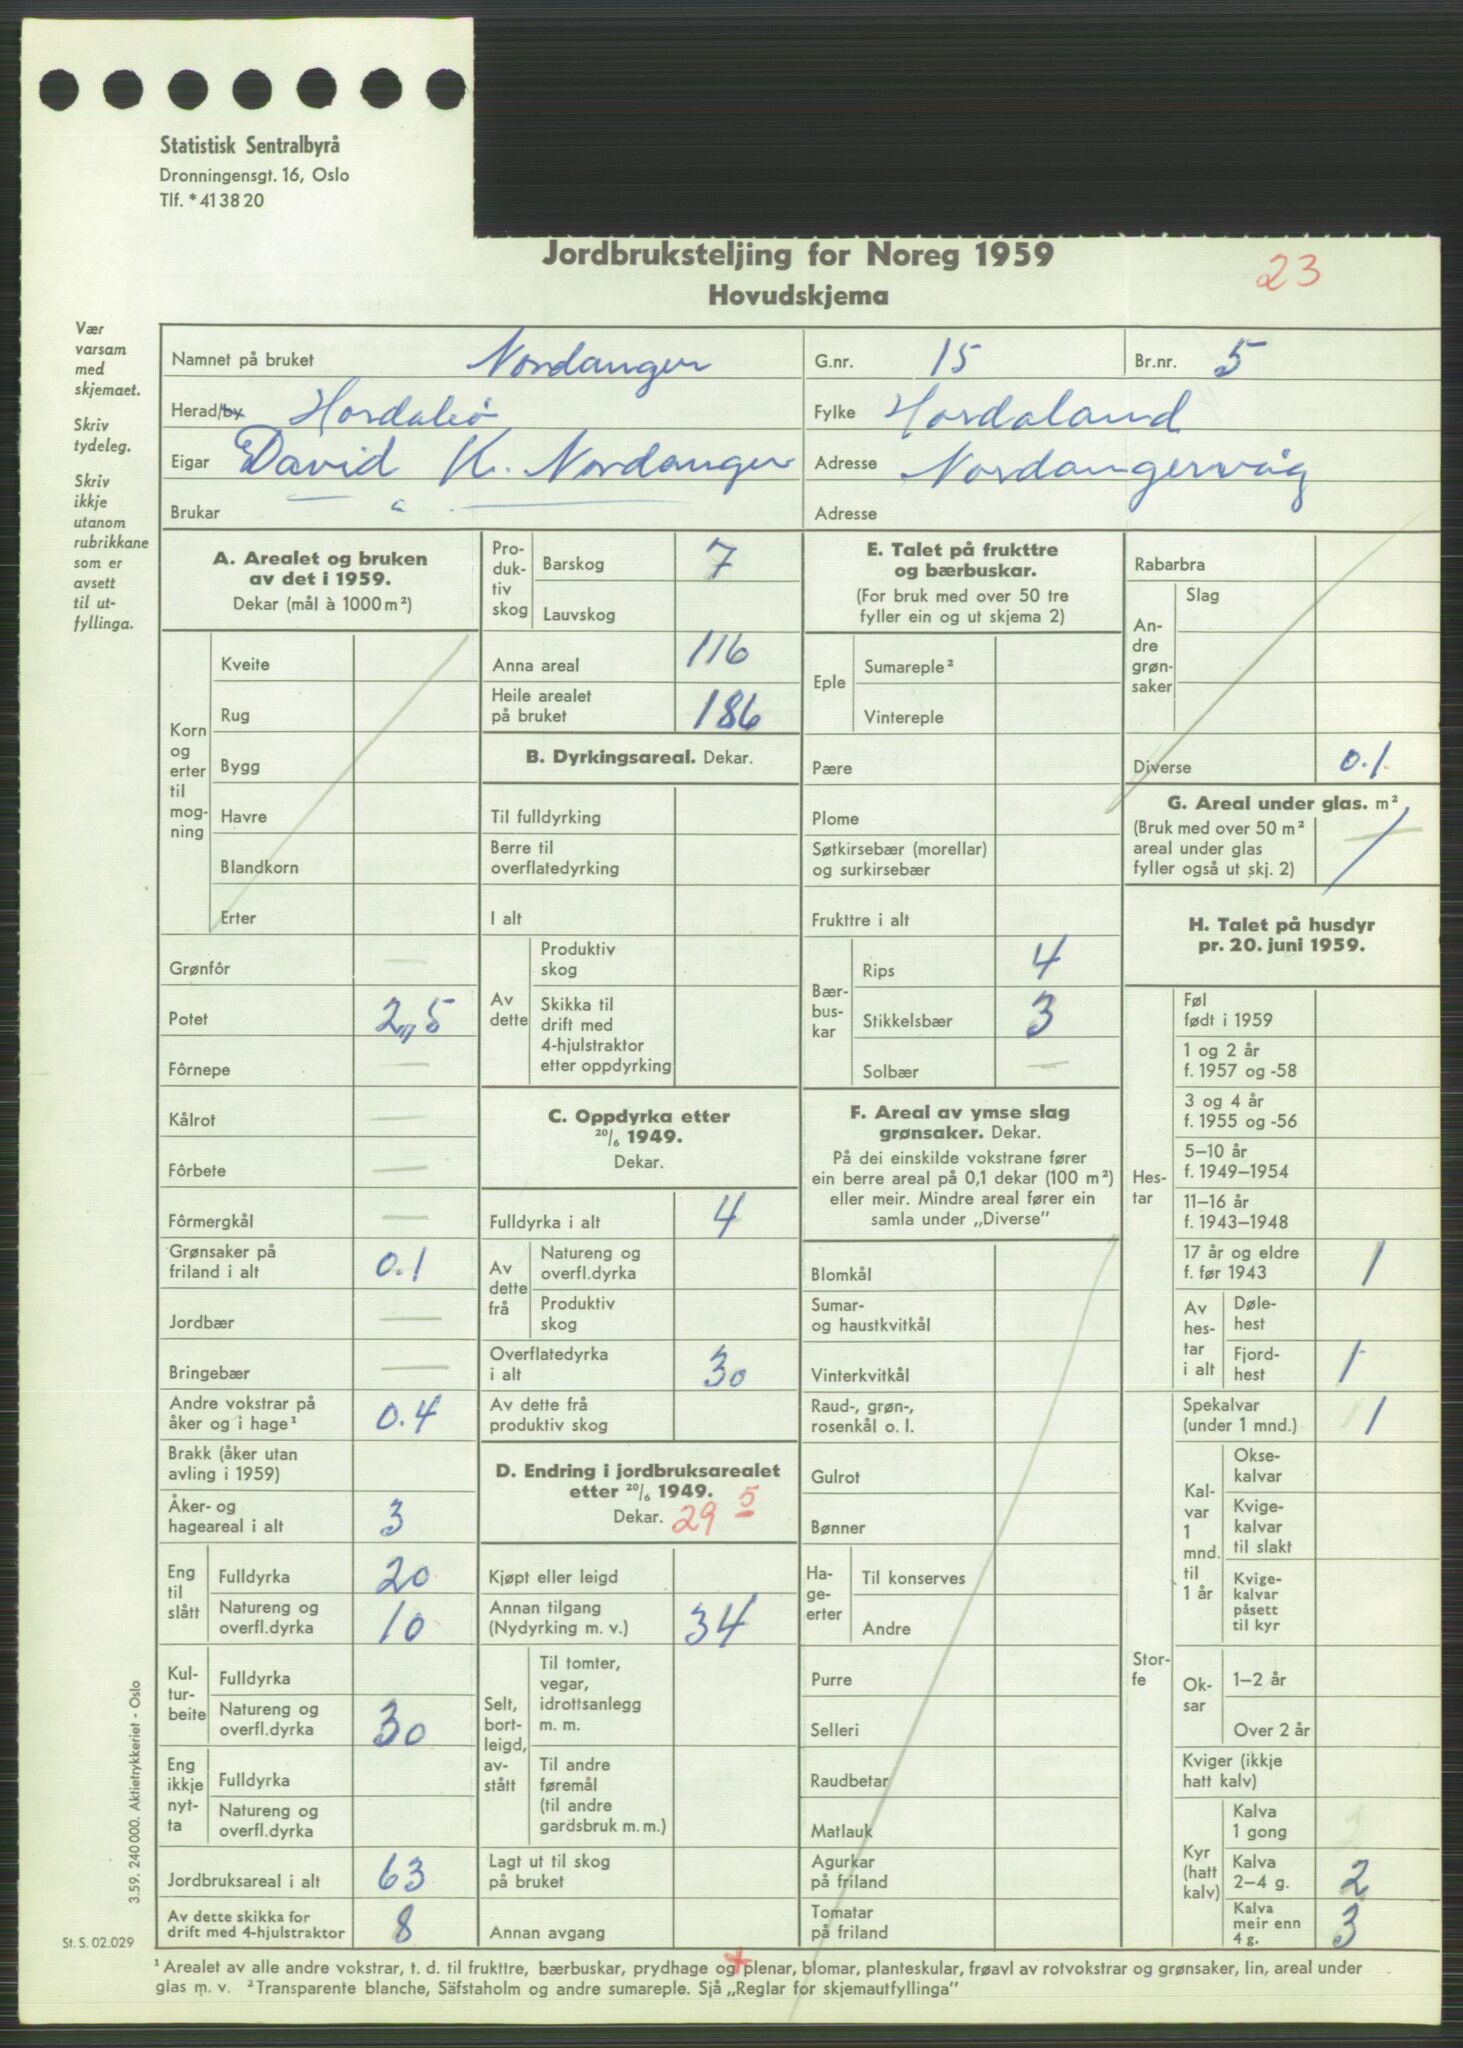 Statistisk Sentralbyrå
Dronningensgt. 16, Oslo
Tlf. * 41 38 20
Jordbruksteljing for Noreg 1959
Hovudskjema
23
Vær
varsam
med
skjemaet.
Skriv
tydeleg.
Skriv
ikkje
utanom
rubrikkane
som er
avsett
til ut-
fyllinga.
Namnet på bruket Nordanger G.nr. 15 Br.nr. 5
Herad/by Hordabø Fylke Hordaland
Eigar David K. Nordanger Adresse Nordangervåg
Brukar — " — Adresse
A. Arealet og bruken
av det i 1959.
Dekar (mål à 1000 m²)
Korn
og
erter
til
mog-
ning
Kveite
Rug
Bygg
Havre
Blandkorn
Erter
Grønfôr —
Potet 2,,5
Fôrnepe —
Kålrot —
Fôrbete —
Fôrmergkål —
Grønsaker på
friland i alt 0.1
Jordbær —
Bringebær —
Andre vokstrar på
åker og i hage¹ 0.4
Brakk (åker utan
avling i 1959)
Åker- og
hageareal i alt 3
Eng
til
slått
Fulldyrka 20
Natureng og
overfl.dyrka 10
Kul-
tur-
beite
Fulldyrka
Natureng og
overfl.dyrka 30
Eng
ikkje
nyt-
ta
Fulldyrka
Natureng og
overfl.dyrka
Jordbruksareal i alt 63
Av dette skikka for
drift med 4-hjulstraktor 8
Pro-
duk-
tiv
skog
Barskog 7
Lauvskog
Anna areal 116
Heile arealet
på bruket 186
B. Dyrkingsareal. Dekar.
Til fulldyrking
Berre til
overflatedyrking
I alt
Av
dette
Produktiv
skog
Skikka til
drift med
4-hjulstraktor
etter oppdyrking
C. Oppdyrka etter
20/6 1949.
Dekar.
Fulldyrka i alt 4
Av
dette
frå
Natureng og
overfl.dyrka
Produktiv
skog
Overflatedyrka
i alt 30
Av dette frå
produktiv skog
D. Endring i jordbruksarealet
etter 20/6 1949.
Dekar. 29 5
Kjøpt eller leigd
Annan tilgang
(Nydyrking m. v.) 34
Selt,
bort-
leigd,
av-
stått
Til tomter,
vegar,
idrottsanlegg
m. m.
Til andre
føremål
(til andre
gardsbruk m. m.)
Lagt ut til skog
på bruket
Annan avgang
E. Talet på frukttre
og bærbuskar.
(For bruk med over 50 tre
fyller ein og ut skjema 2)
Eple
Sumareple²
Vintereple
Pære
Plome
Søtkirsebær (morellar)
og surkirsebær
Frukttre i alt
Bær-
bus-
kar
Rips 4
Stikkelsbær 3
Solbær —
F. Areal av ymse slag
grønsaker. Dekar.
På dei einskilde vokstrane fører
ein berre areal på 0,1 dekar (100 m²)
eller meir. Mindre areal fører ein
samla under „Diverse”
Blomkål
Sumar-
og haustkvitkål
Vinterkvitkål
Raud-, grøn-,
rosenkål o. l.
Gulrot
Bønner
Ha-
ge-
erter
Til konserves
Andre
Purre
Selleri
Raudbetar
Matlauk
Agurkar
på friland
Tomatar
på friland
Rabarbra
An-
dre
grøn-
saker
Slag
Diverse 0.1
G. Areal under glas. m²
(Bruk med over 50 m²
areal under glas
fyller også ut skj. 2)
—
H. Talet på husdyr
pr. 20. juni 1959.
Hes-
tar
Føl
født i 1959
1 og 2 år
f. 1957 og -58
3 og 4 år
f. 1955 og -56
5–10 år
f. 1949–1954
11–16 år
f. 1943–1948
17 år og eldre
f. før 1943 1
Av
hes-
tar
i alt
Døle-
hest
Fjord-
hest 1
Stor-
fe
Spekalvar
(under 1 mnd.) 1
Kal-
var
1
mnd.
til
1 år
Okse-
kalvar
Kvige-
kalvar
til slakt
Kvige-
kalvar
påsett
til kyr
Ok-
sar
1–2 år
Over 2 år
Kviger (ikkje
hatt kalv)
Kyr
(hatt
kalv)
Kalva
1 gong
Kalva
2–4 g. 2
Kalva
meir enn
4 g. 3
¹ Arealet av alle andre vokstrar, t. d. til frukttre, bærbuskar, prydhage og plenar, blomar, planteskular, frøavl av rotvokstrar og grønsaker, lin, areal under
glas m. v. ² Transparente blanche, Säfstaholm og andre sumareple. Sjå „Reglar for skjemautfyllinga”
3.59. 240 000. Aktietrykkeriet - Oslo
St. S. 02.029